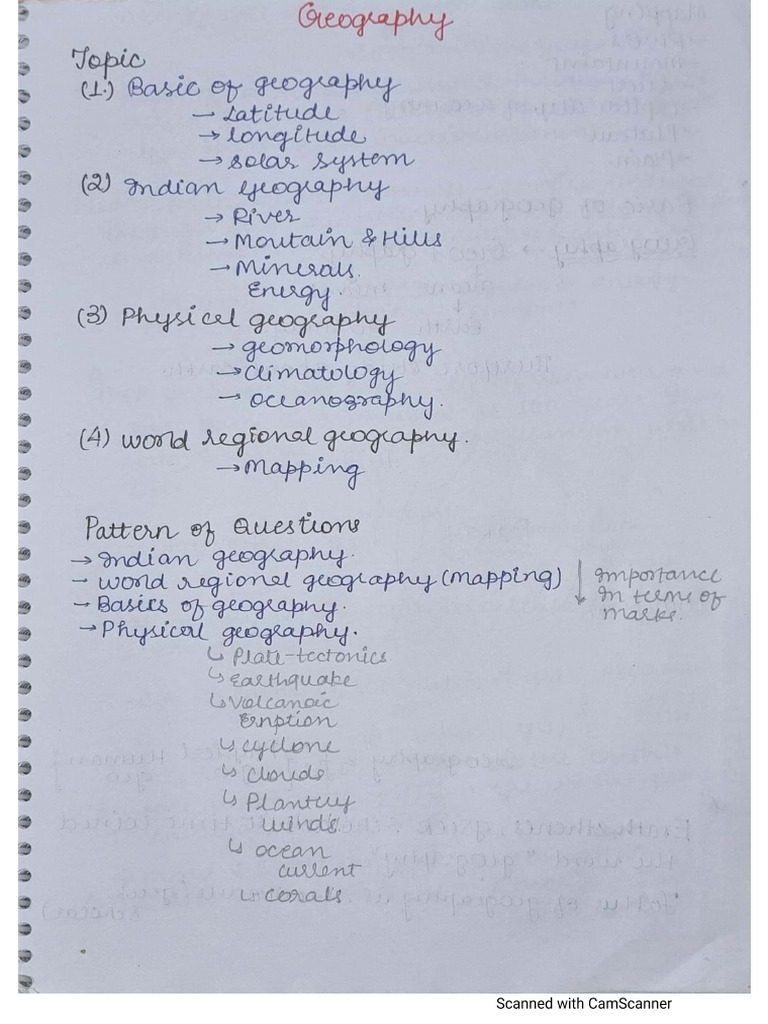 Geography
Topic
(1.) Basic of geography
→ Latitude
→ longitude
→ solar system
(2) Indian geography
→ River
→ Moutain & Hills
→ Minerals.
Energy.
(3) Physical geography
→ geomorphology
→ climatology
→ oceanography.
(4) world regional geography.
→ Mapping
Pattern of Questions
→ Indian geography.
- world regional geography (mapping)
- Basics of geography.
→ Physical geography.
↓ importance
In terms of
marks.
↳ Plate-tectonics
↳ Earthquake
↳ Volcanoic
Eruption
↳ cyclone
↳ clouds
↳ Plantary
winds
↳ ocean
current
↳ corals
Scanned with CamScanner